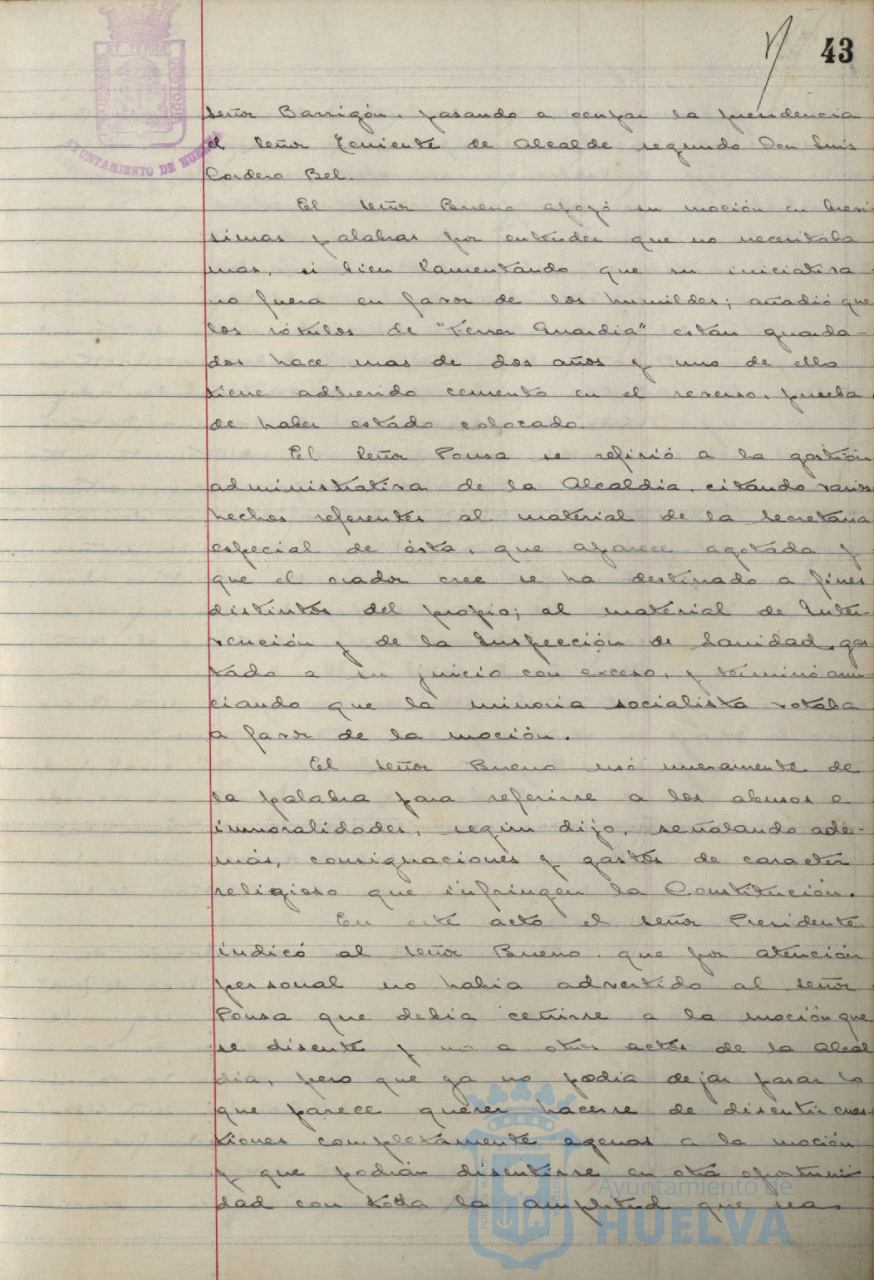 43
AYUNTAMIENTO DE HUELVA
señor Barrigón, pasando a ocupar la presidencia
el señor Teniente de Alcalde segundo Don Luis
Cordero Bel.
El señor Bueno apoyó su moción en breví-
simas palabras por entender que no necesitaba
mas, si bien lamentando que su iniciativa
no fuera en favor de los humildes; añadió que
los rótulos de "Terrer Guardia" están guarda-
dos hace mas de dos años y uno de ello
tiene adherido cemento en el reverso, prueba
de haber estado colocado.
El señor Ponsa se refirió a la gestión
administrativa de la Alcaldia, citando varios
hechos referentes al material de la Secretaria
especial de ésta, que aparece agotada y
que el orador cree se ha destinado a fines
distintos del propio; al material de Inter-
vención y de la Inspección de Sanidad, gas-
tado a su juicio con exceso, y terminó anun-
ciando que la minoria socialista votaba
a favor de la moción.
El señor Bueno usó nuevamente de
la palabra para referirse a los abusos e
inmoralidades, según dijo, señalando ade-
más, consignaciones y gastos de caracter
religioso que infringen la Constitución.
En este acto el señor Presidente
indicó al señor Bueno que por atención
personal no habia advertido al señor
Ponsa que debia ceñirse a la moción que
se discute y no a otros actos de la Alcal
dia, pero que ya no podia dejar pasar lo
que parece querer hacerse de discutir cues-
tiones completamente agenas a la moción
y que podrán discutirse en otra oportuni-
dad con toda la amplitud que sea
Ayuntamiento de
HUELVA